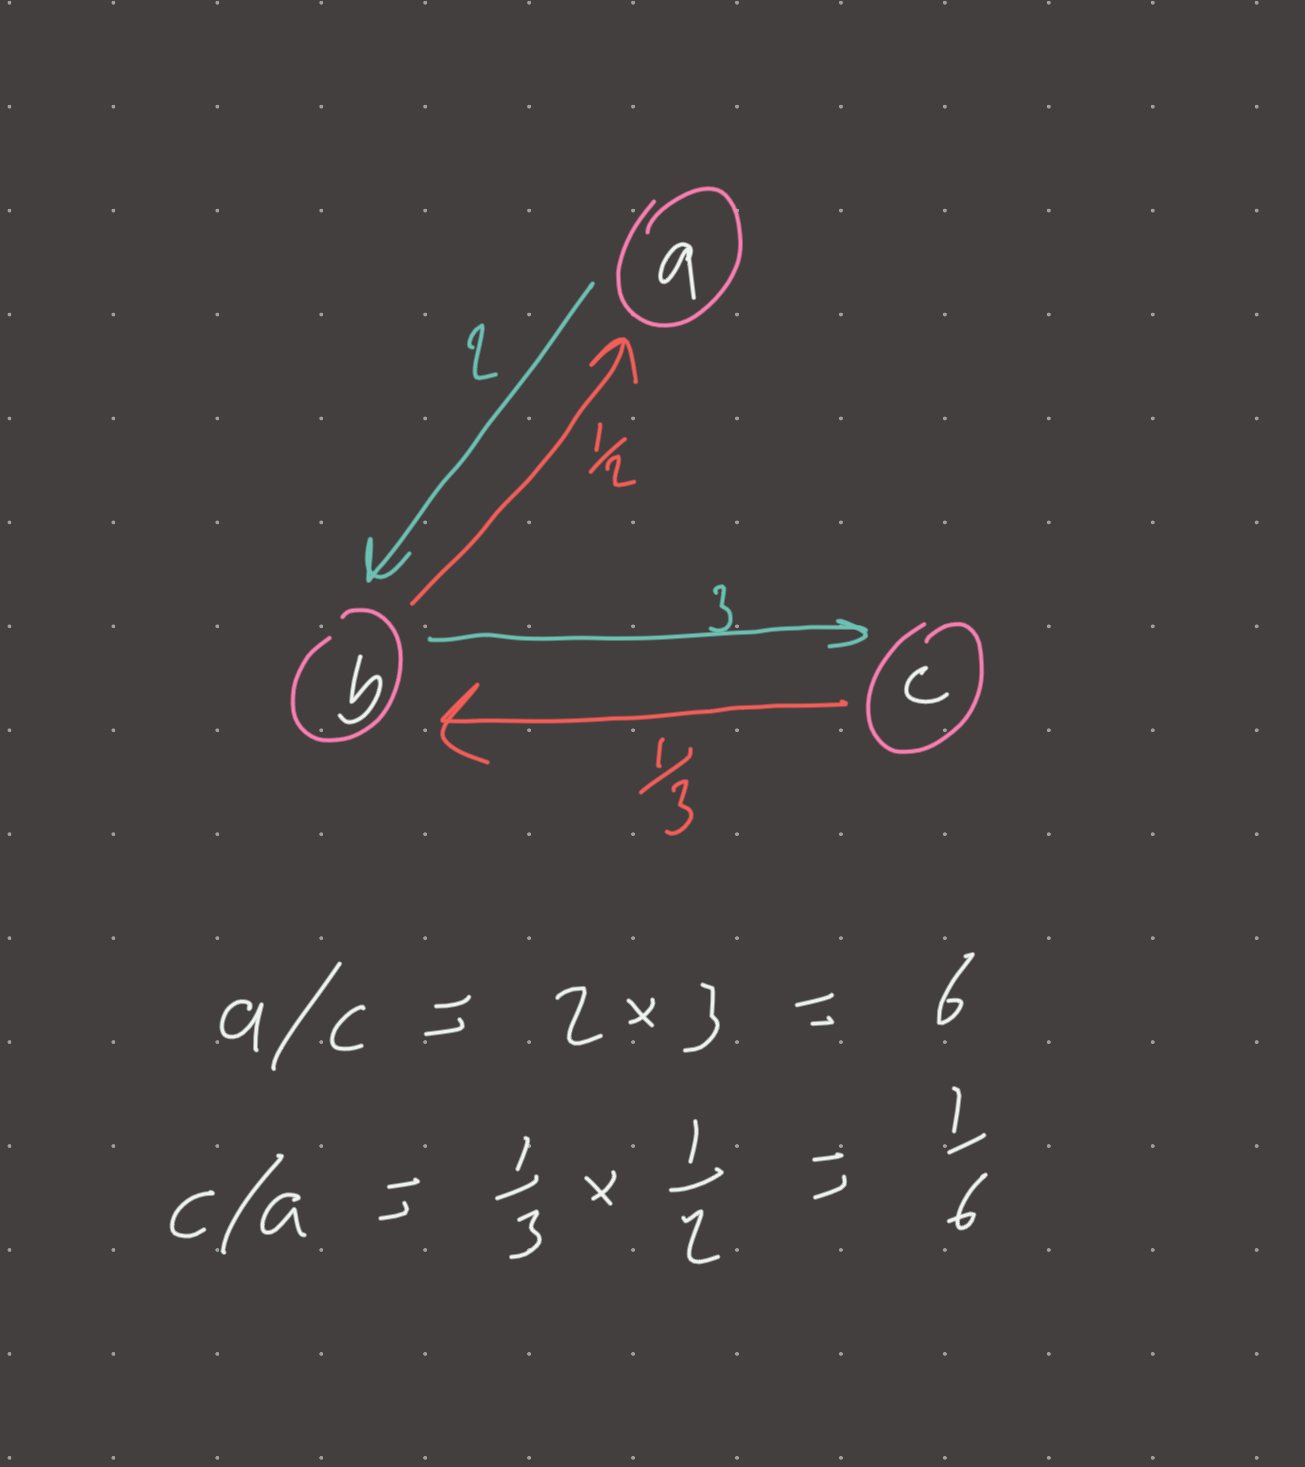 a
2
1/2
3
b
c
1/3
a/c = 2 × 3 = 6
c/a = 1/3 × 1/2 = 1/6